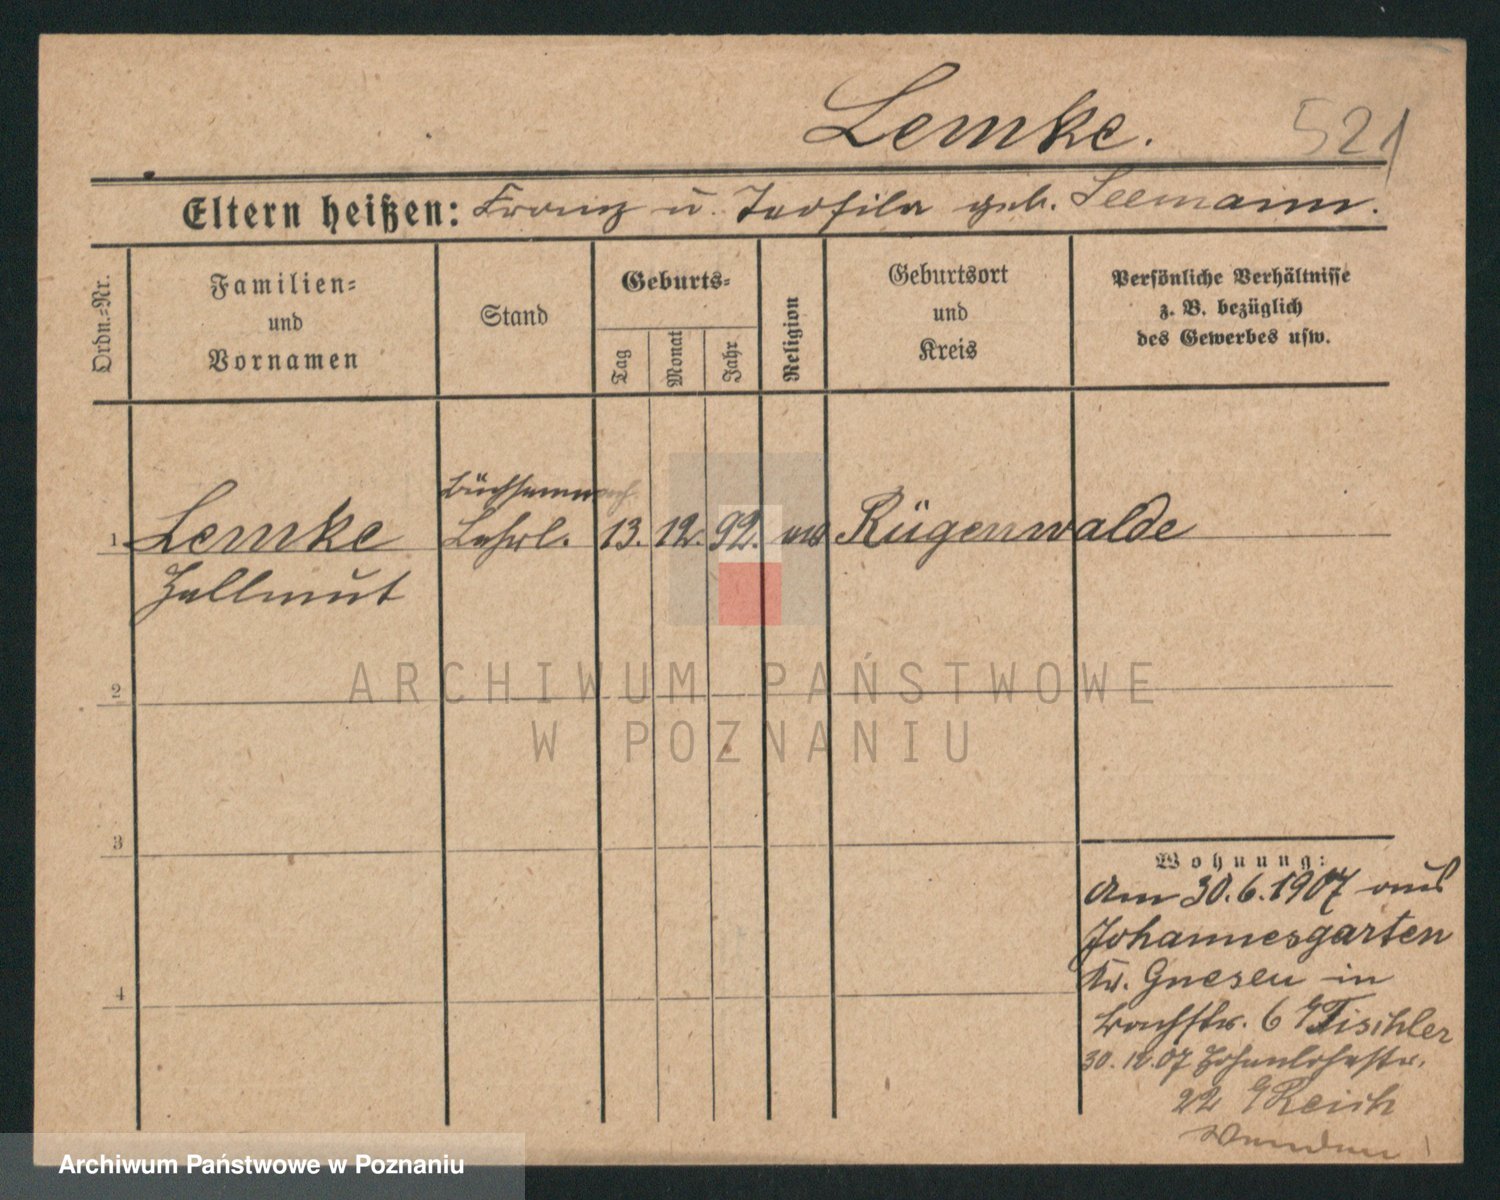 Lemke. 521
Eltern heißen: Franz u. Teofila geb. Seemann.
Ordn.-Nr.
Familien-
und
Vornamen
Stand
Geburts-
Tag
Monat
Jahr
Religion
Geburtsort
und
Kreis
Persönliche Verhältnisse
z. B. bezüglich
des Gewerbes usw.
Büchsenmach.
1 Lemke Lehrl. 13. 12. 92. ev Rügenwalde
Hellmut
2
3
4
Wohnung:
Am 30.6.1907 aus
Johannesgarten
Kr. Gnesen in
Bachstr. 6 b/Tischler
30.12.07 Hohenlohestr.
22 b/Reich
Wenden
ARCHIWUM PAŃSTWOWE
W POZNANIU
Archiwum Państwowe w Poznaniu